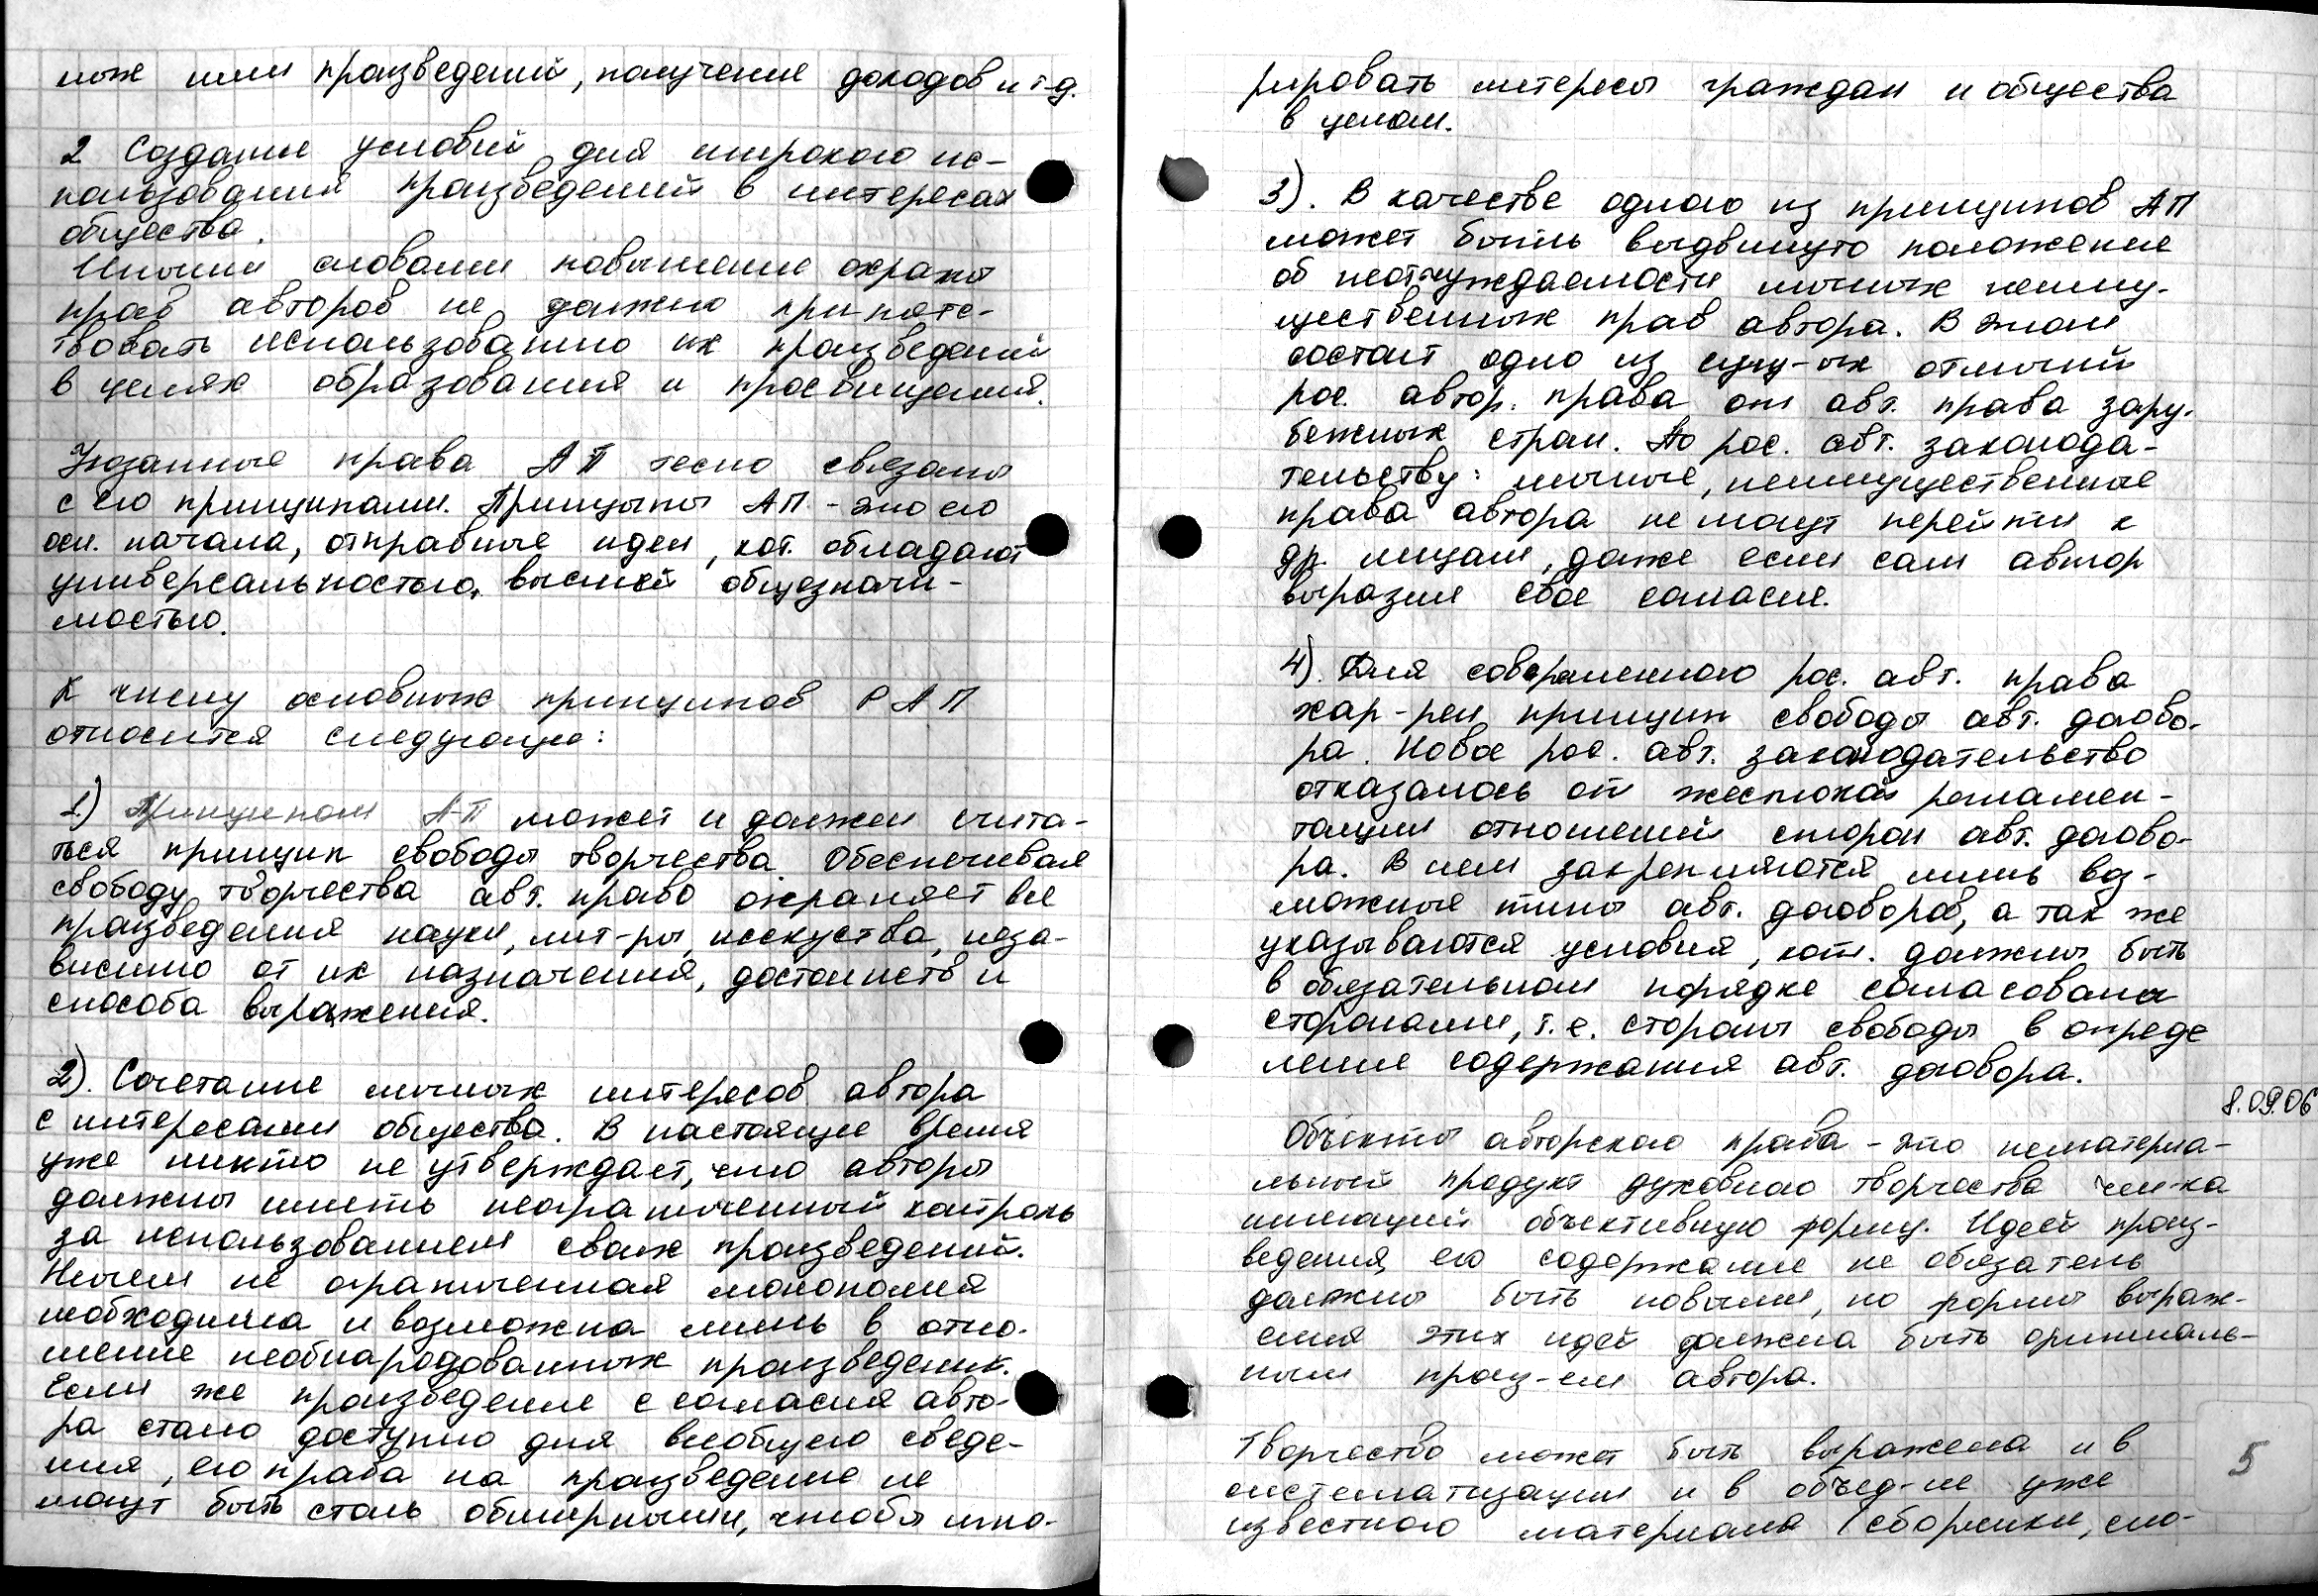 ных ими произведений, получение доходов и т.д.
2 Создание условий для широкого ис-
пользования произведений в интересах
общества.
Иными словами повышение охраны
прав авторов не должно припятс-
твовать использованию их произведений
в целях образования и просвищения.
Указанные права АП тесно связаны
с его принципами. Принцыпы АП - это его
осн. начала, отправные идеи, кот. обладают
универсальностью, высшей общезначи-
мостью.
К числу основных принципов РАП
относится следующие:
1) Принципом АП может и должен счита-
ться принцип свободы творчества. Обеспечивая
свободу творчества авт. право охраняет все
произведения науки, лит-ры, исскуства, неза-
висимо от их назначения, достоинств и
способа выражения.
2). Сочетание личных интересов автора
с интересами общества. В настоящее время
уже никто не утверждает, что авторы
должны иметь неограниченный контроль
за использованием своих произведений.
Ничем не ограниченная монополия
необходима и возможна лишь в отно-
шение необнародованных произведений.
Если же произведение с согласия авто-
ра стало доступно для всеобщего сведе-
ния, его права на произведение не
могут быть столь обширными, чтобы игно-
рировать интересы граждан и общества
в целом.
3). В качестве одного из принципов АП
может быть выдвинуто положение
об неотчуждаемости личных неиму-
щественных прав автора. В этом
состоит одно из сущ-ых отличий
рос. автор. права от авт. права зару-
бежных стран. По рос. авт. законода-
тельству: личные, неимущественные
права автора не могут перейти к
др. лицам, даже если сам автор
выразил свое согласие.
4). Для совершенного рос. авт. права
хар-рен принцип свободы авт. догово-
ра. Новое рос. авт. законодательство
отказалось от жестокой регламен-
тации отношений сторон авт. догово-
ра. В нем закрепляются лишь воз-
можные типы авт. договоров, а так же
указываются условия, кот. должны быть
в обязательном порядке согласованы
сторонами, т.е. стороны свободы в опреде
ление содержания авт. договора.
8.09.06
Объекты авторского права - это нематериа-
льный продукт духовного творчества чел-ка
имеющий объективную форму. Идеи произ-
ведения, его содержание не обязатель
должны быть новыми, но формы выраж-
ения этих идей должна быть оригиналь-
ным произ-ем автора.
Творчество может быть выражена и в
систематизации и в объед-ие уже
известного материала (сборники, сло-
5